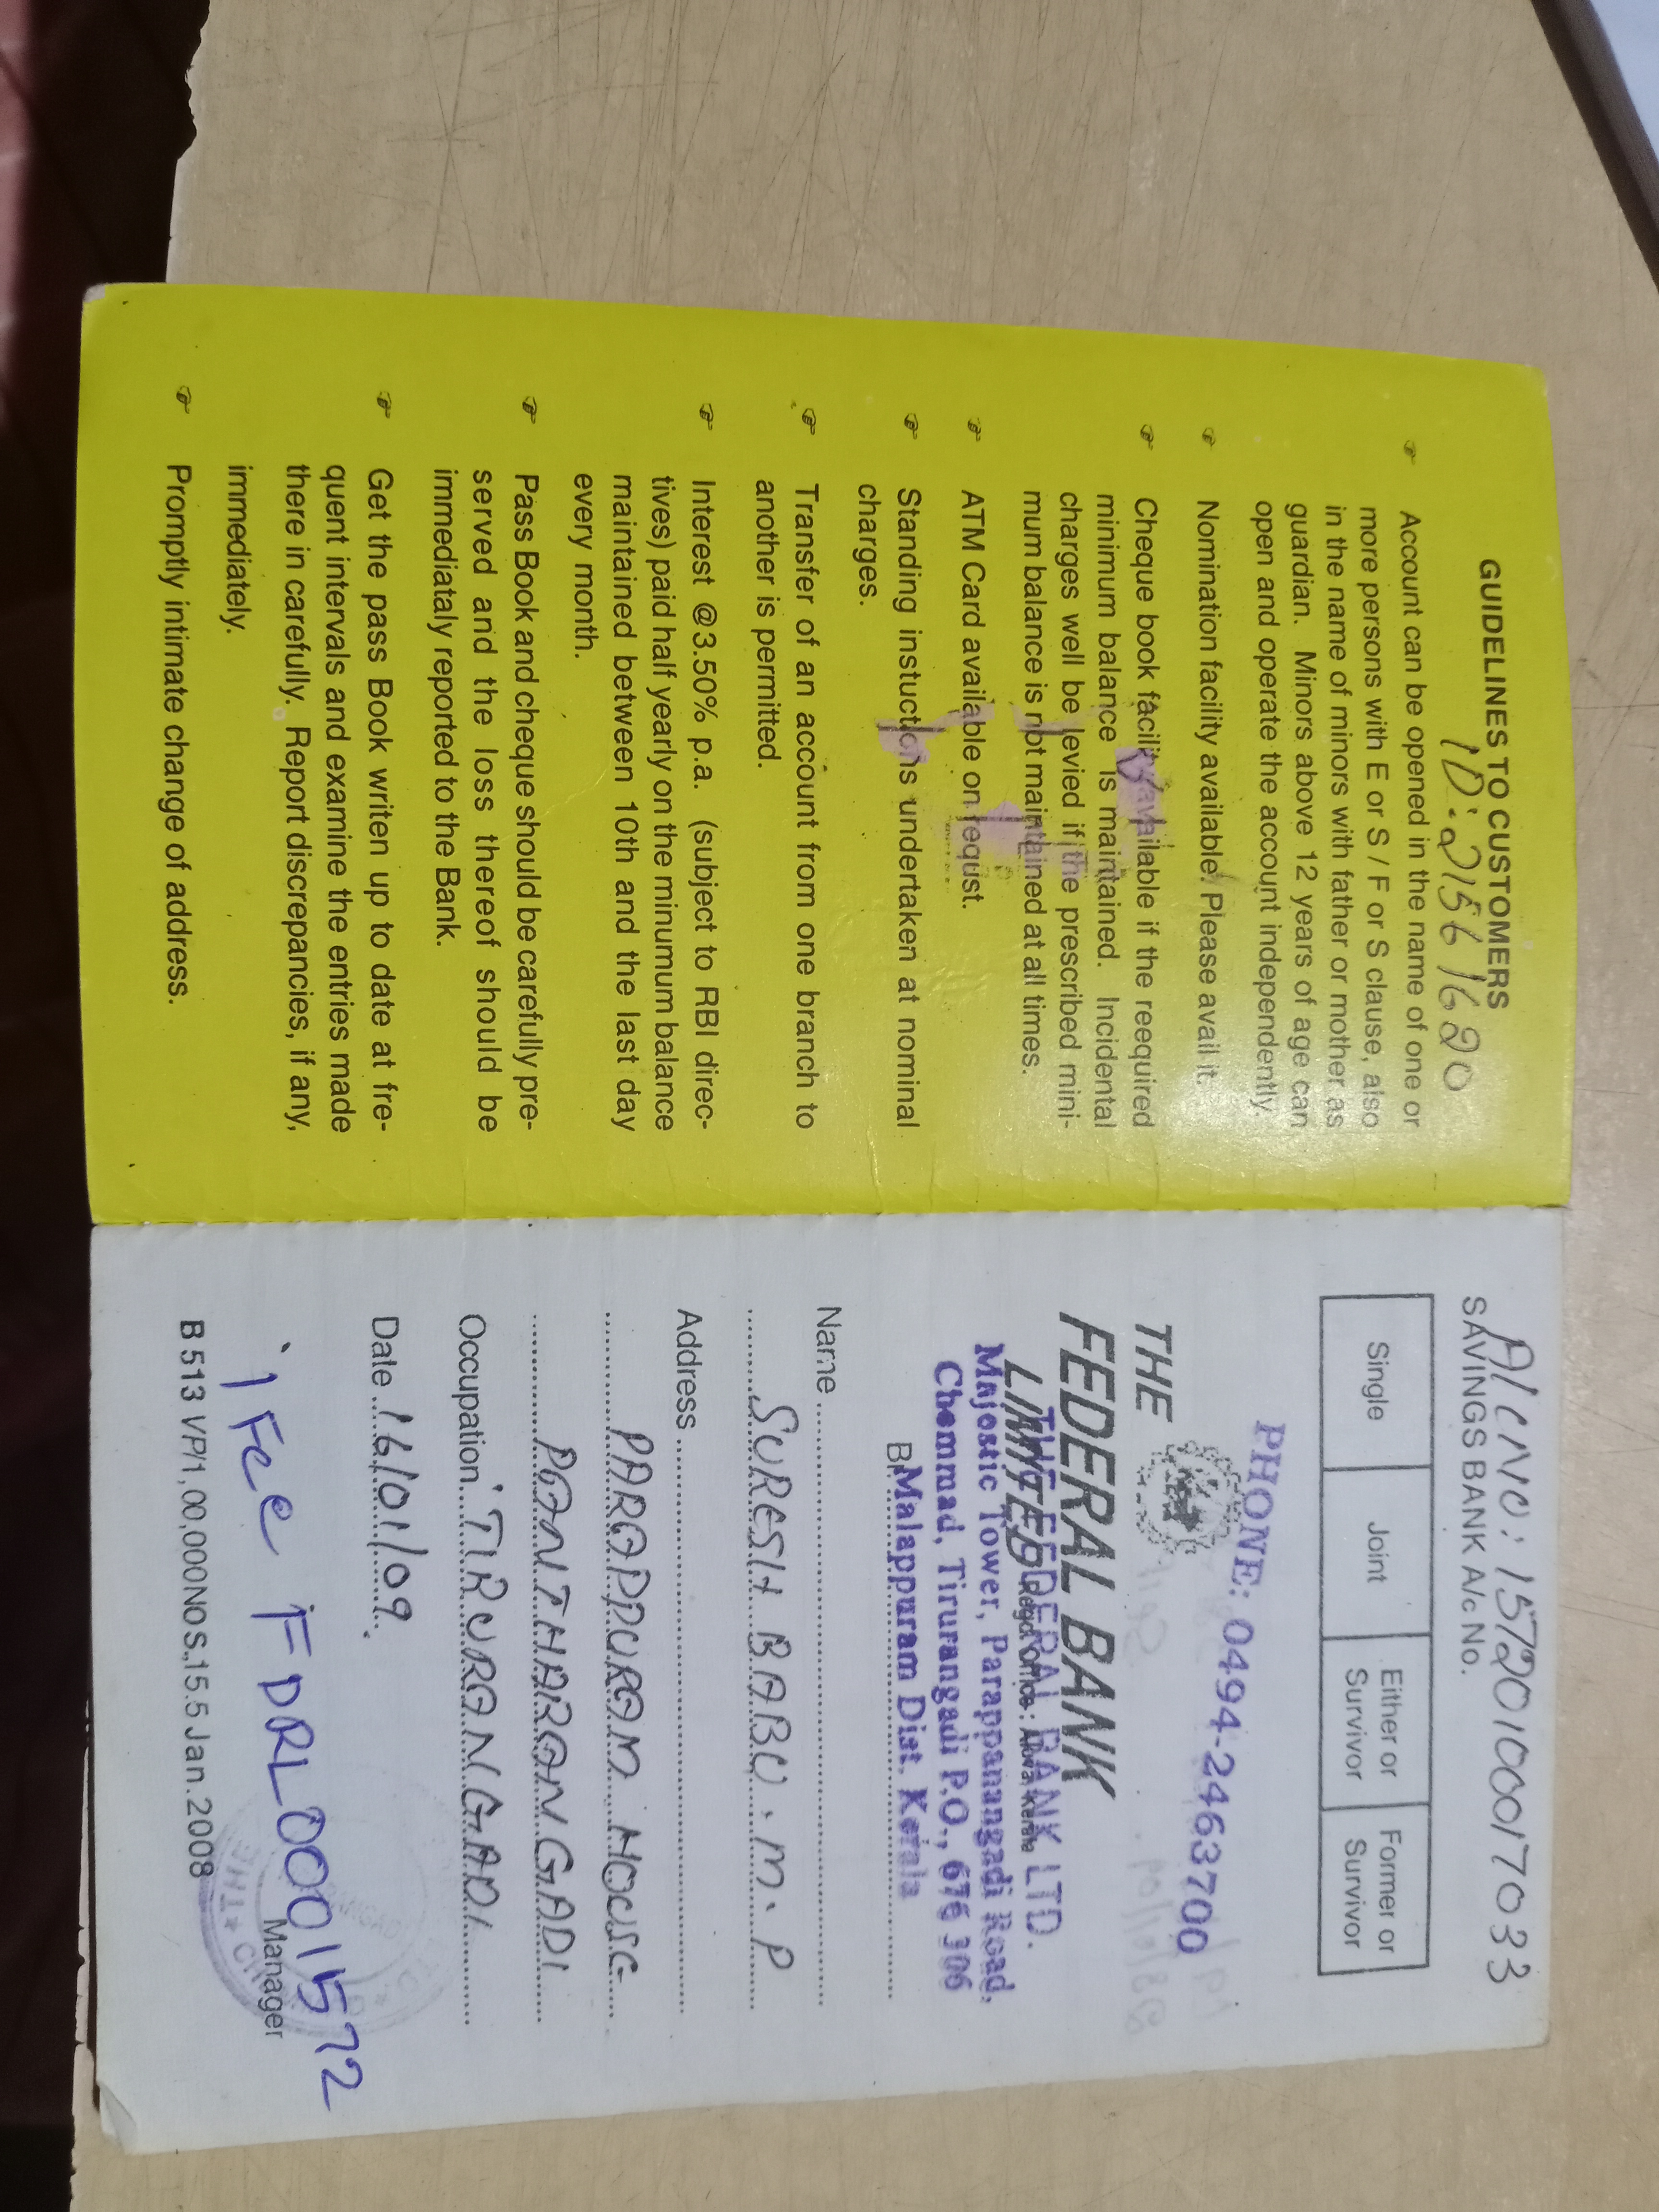 GUIDELINES TO CUSTOMERS
ID: 21561620
Account can be opened in the name of one or
more persons with E or S / F or S clause, also
in the name of minors with father or mother as
guardian. Minors above 12 years of age can
open and operate the account independently.
Nomination facility available. Please avail it.
Cheque book facility available if the reequired
minimum balance is maintained. Incidental
charges well be levied if the prescribed mini-
mum balance is not maintained at all times.
ATM Card available on requst.
Standing instuctions undertaken at nominal
charges.
Transfer of an account from one branch to
another is permitted.
Interest @3.50% p.a. (subject to RBI direc-
tives) paid half yearly on the minumum balance
maintained between 10th and the last day
every month.
Pass Book and cheque should be carefully pre-
served and the loss thereof should be
immediataly reported to the Bank.
Get the pass Book writen up to date at fre-
quent intervals and examine the entries made
there in carefully. Report discrepancies, if any,
immediately.
Promptly intimate change of address.
A/c NO: 15720100017033
SAVINGS BANK A/c No.
Single Joint Either or Survivor Former or Survivor
PHONE: 0494-2463700
THE
FEDERAL BANK
LIMITED Regd. Office : Alwa, Kerala
THE FEDERAL BANK LTD.
Majestic Tower, Parappanangadi Road,
Chemmad, Tirurangadi P.O., 676 306
Malappuram Dist. Kerala
Name
SURESH BABU . M . P
Address
PARAPPURAM HOUSE
PANTHARANGADI
Occupation TIRURANGADI
Date 16/01/09.
Manager
iFce FDRL0001572
B 513 VP/1,00,000NOS.,15.5 Jan.2008